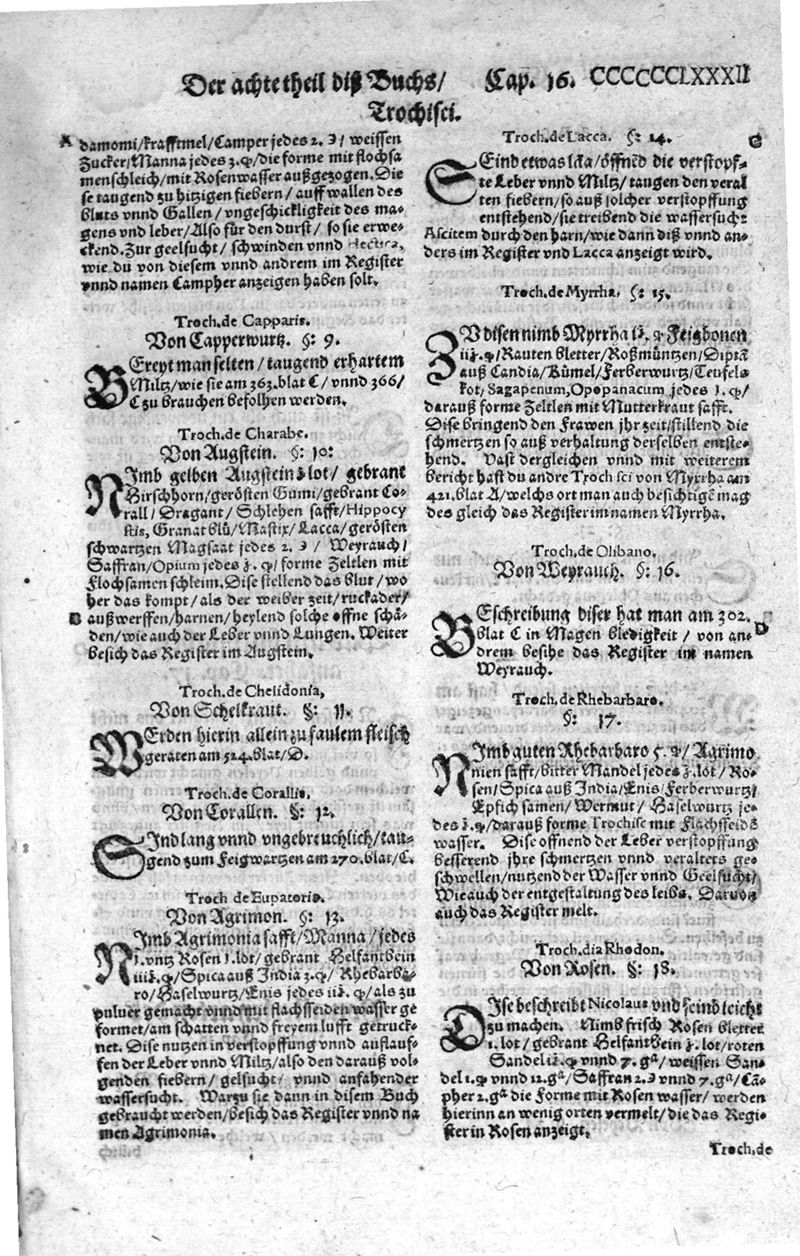 Der achte theil diß Buchs/ Cap. 16. CCCCCCLXXXII
Trochisci.
A
damomi/krafftmel/Camper jedes 2. ℈/ weissen
Zucker/Manna jedes 3.q/die forme mit flochsa
menschleich/mit Rosenwasser außgezogen. Die
se taugend zu hitzigen fiebern/ auff wallen des
bluts vnnd Gallen/ vngeschickligkeit des ma-
gens vnd leber/Also für den durst/ so sie erwe-
ckend. Zur geelsucht/ schwinden vnnd Hectica,
wie du von diesem vnnd andrem im Register
vnnd namen Campher anzeigen haben solt.
Troch.de Capparis.
Von Capperwurtz. §: 9.
BEreyt man selten/ taugend erhartem
Miltz/wie sie am 363.blat C/ vnnd 366/
C zu brauchen befolhen werden.
Troch.de Charabe.
Von Augstein. §: 10:
NImb gelben Augstein ʒ.lot/ gebrant
Hirschhorn/gerösten Gumi/gebrant Co-
rall/ Dragant/ Schlehen safft/Hippocy
stis, Granat blü/Mastix/Lacca/gerösten
schwartzen Magsaat jedes 2. ℈/ Weyrauch/
Saffran/Opium jedes ʒ. q/ forme Zeltlen mit
Flochsamen schleim. Dise stellend das blut/ wo
her das kompt/ als der weiber zeit/ ruckader/
B
außwerffen/harnen/heylend solche offne schä-
den/wie auch der Leber vnnd Lungen. Weiter
besich das Register im Augstein.
Troch.de Chelidonia,
Von Schelkraut. §: 11.
WErden hierin allein zu faulem fleisch
geraten am 524.blat/D.
Troch.de Corallis.
Von Corallen. §: 12.
SInd lang vnnd vngebreuchlich/tau-
gend zum Feigwartzen am 270.blat/C.
Troch de Eupatorio.
Von Agrimon. §: 13.
NImb Agrimonia safft/Manna/jedes
1.vntz Rosen 1.lot/ gebrant Helfantbein
iiiʒ.q/Spica auß India 3.q/ Rhebarba-
ro/Haselwurtz/Enis jedes iiʒ.q/als zu
puluer gemacht vnnd mit flachsseiden wasser ge
formet/am schatten vnnd freyem lufft getruck-
net. Dise nutzen in verstopffung vnnd auflauf-
fen der Leber vnnd Miltz/also den darauß vol-
genden fiebern/ gelsucht/ vnnd anfahender
wassersucht. Warzu sie dann in disem Buch
gebraucht werden/besich das Register vnnd na
men Agrimonia.
Troch.de Lacca. §: 14.
C
SEind etwas lčia/öffnēd die verstopff-
te Leber vnnd Miltz/ taugen den veral
ten fiebern/so auß solcher verstopffung
entstehend/sie treibend die wassersucht
Ascitem durch den harn/wie dann diß vnnd an-
ders im Register vnd Lacca anzeigt wird.
Troch.de Myrrha. §: 15.
ZV disen nimb Myrrha iiʒ. q Feigbonen
iiʒ.q/Rauten bletter/Roßmüntzen/Diptā
auß Candia/Kümel/Ferberwurtz/Teufels
kot/Sagapenum,Opopanacum jedes 1. q/
darauß forme Zeltlen mit Mutterkraut safft.
Dise bringend den Frawen jhr zeit/stillend die
schmertzen so auß verhaltung derselben entste-
hend. Vast dergleichen vnnd mit weiterem
bericht hast du andre Trochisci von Myrrha am
421.blat A/welchs ort man auch besichtigē mag
des gleich das Register im namen Myrrha.
Troch.de Olibano.
Von Weyrauch. §: 16.
BEschreibung diser hat man am 302.
D
blat C in Magen bledigkeit / von an-
drem besihe das Register im namen
Weyrauch.
Troch.de Rhebarbaro.
§: 17.
NImb guten Rhebarbaro 5. q/ Agrimo
nien safft/bitter Mandel jedes ʒ.lot/ Ro-
sen/Spica auß India/Enis/Ferberwurtz/
Epfich samen/ Wermut/ Haselwurtz je-
des ʒ.q/darauß forme Trochisc mit Flachsseidē
wasser. Dise offnend der Leber verstopffung
besserend jhre schmertzen vnnd veralters ge-
schwellen/nutzend der Wasser vnnd Geelsucht/
Wie auch der entgestaltung des leibs. Daruon
auch das Register melt.
Troch.dia Rhodon.
Von Rosen. §: 18.
DIse beschreibt Nicolaus vnd seind leicht
zu machen. Nimb frisch Rosen bletter
1.lot/ gebrant Helfantbein ʒ.lot/roten
Sandel iʒ. q vnnd 7.gᵃ/ weissen San-
del 1.q vnnd 12.gᵃ/Saffran 2.℈ vnnd 7.gᵃ/Cā-
pher 2.gᵃ die Forme mit Rosen wasser/ werden
hierinn an wenig orten vermelt/die das Regi-
ster in Rosen anzeigt.
Troch.de